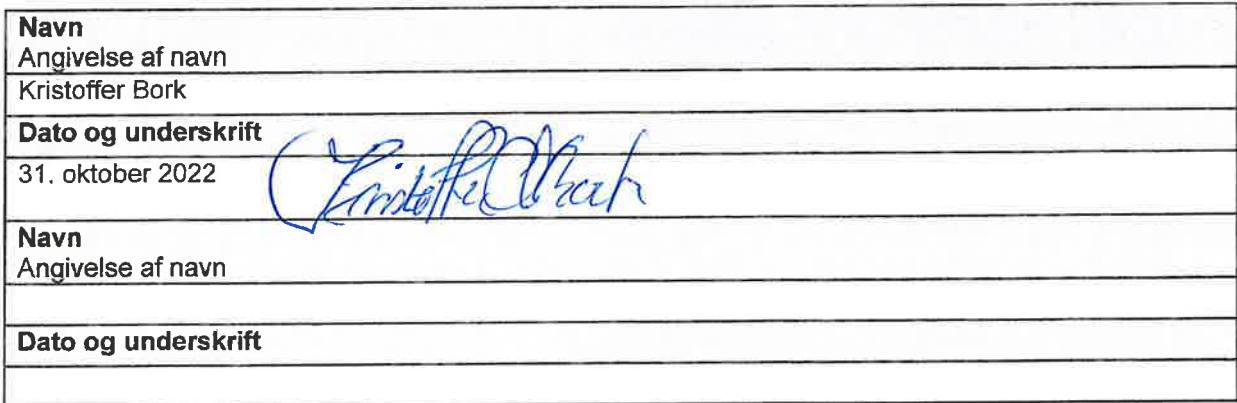 Navn
Angivelse af navn
Kristoffer Bork
Dato og underskrift
31. oktober 2022
Navn
Angivelse af navn
Dato og underskrift